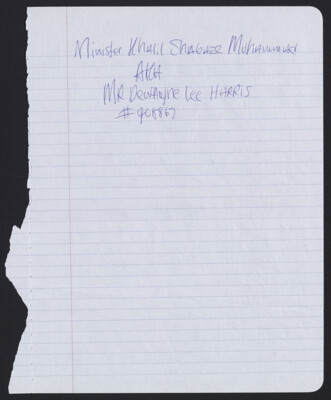 Minister Khalil Shabazz Muhammad
AKA
MR Dewayne Lee HARRIS
# 908867